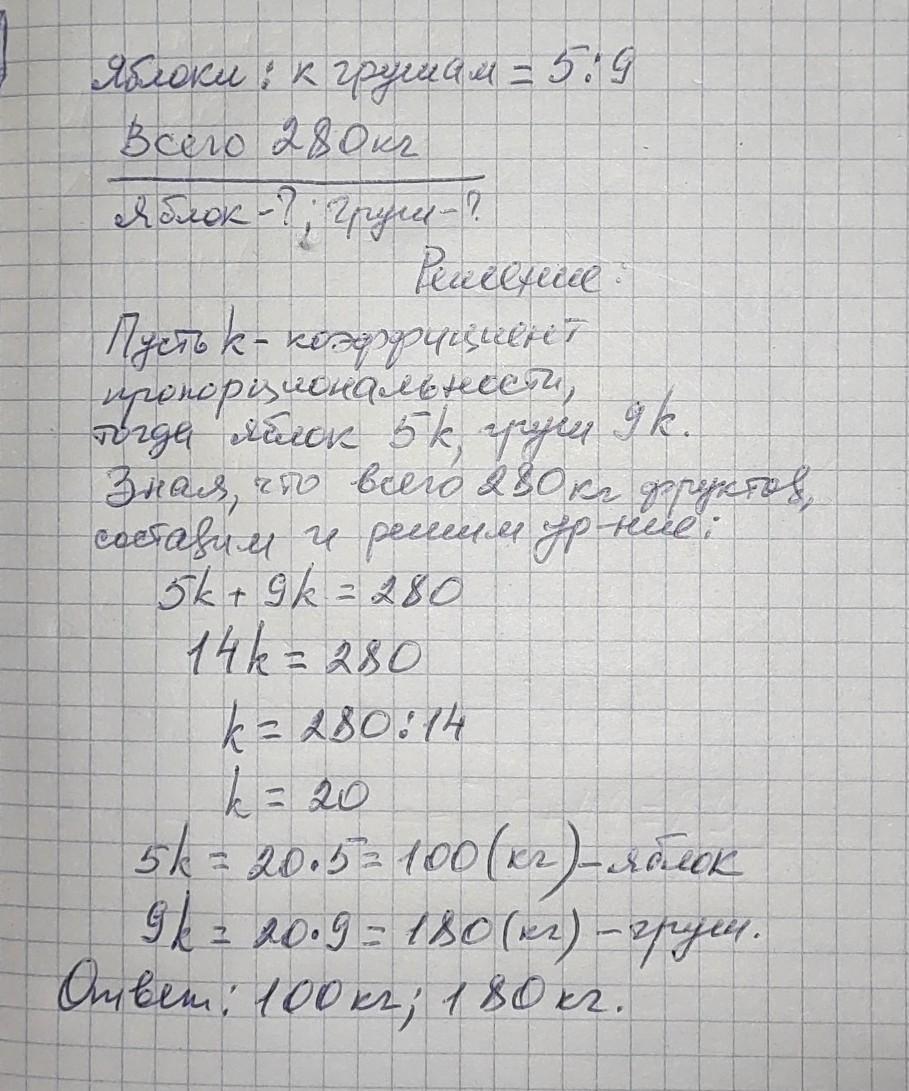 Яблоки : к грушам = 5:9
Всего 280кг
Яблок-?; Груш-?
Решение:
Пусть k - коэффициент
пропорциональности,
тогда яблок 5k, груш 9k.
Зная, что всего 280кг фруктов,
составим и решим ур-ние:
5k + 9k = 280
14k = 280
k = 280:14
k = 20
5k = 20·5 = 100 (кг) - яблок
9k = 20·9 = 180 (кг) - груш.
Ответ: 100кг; 180кг.